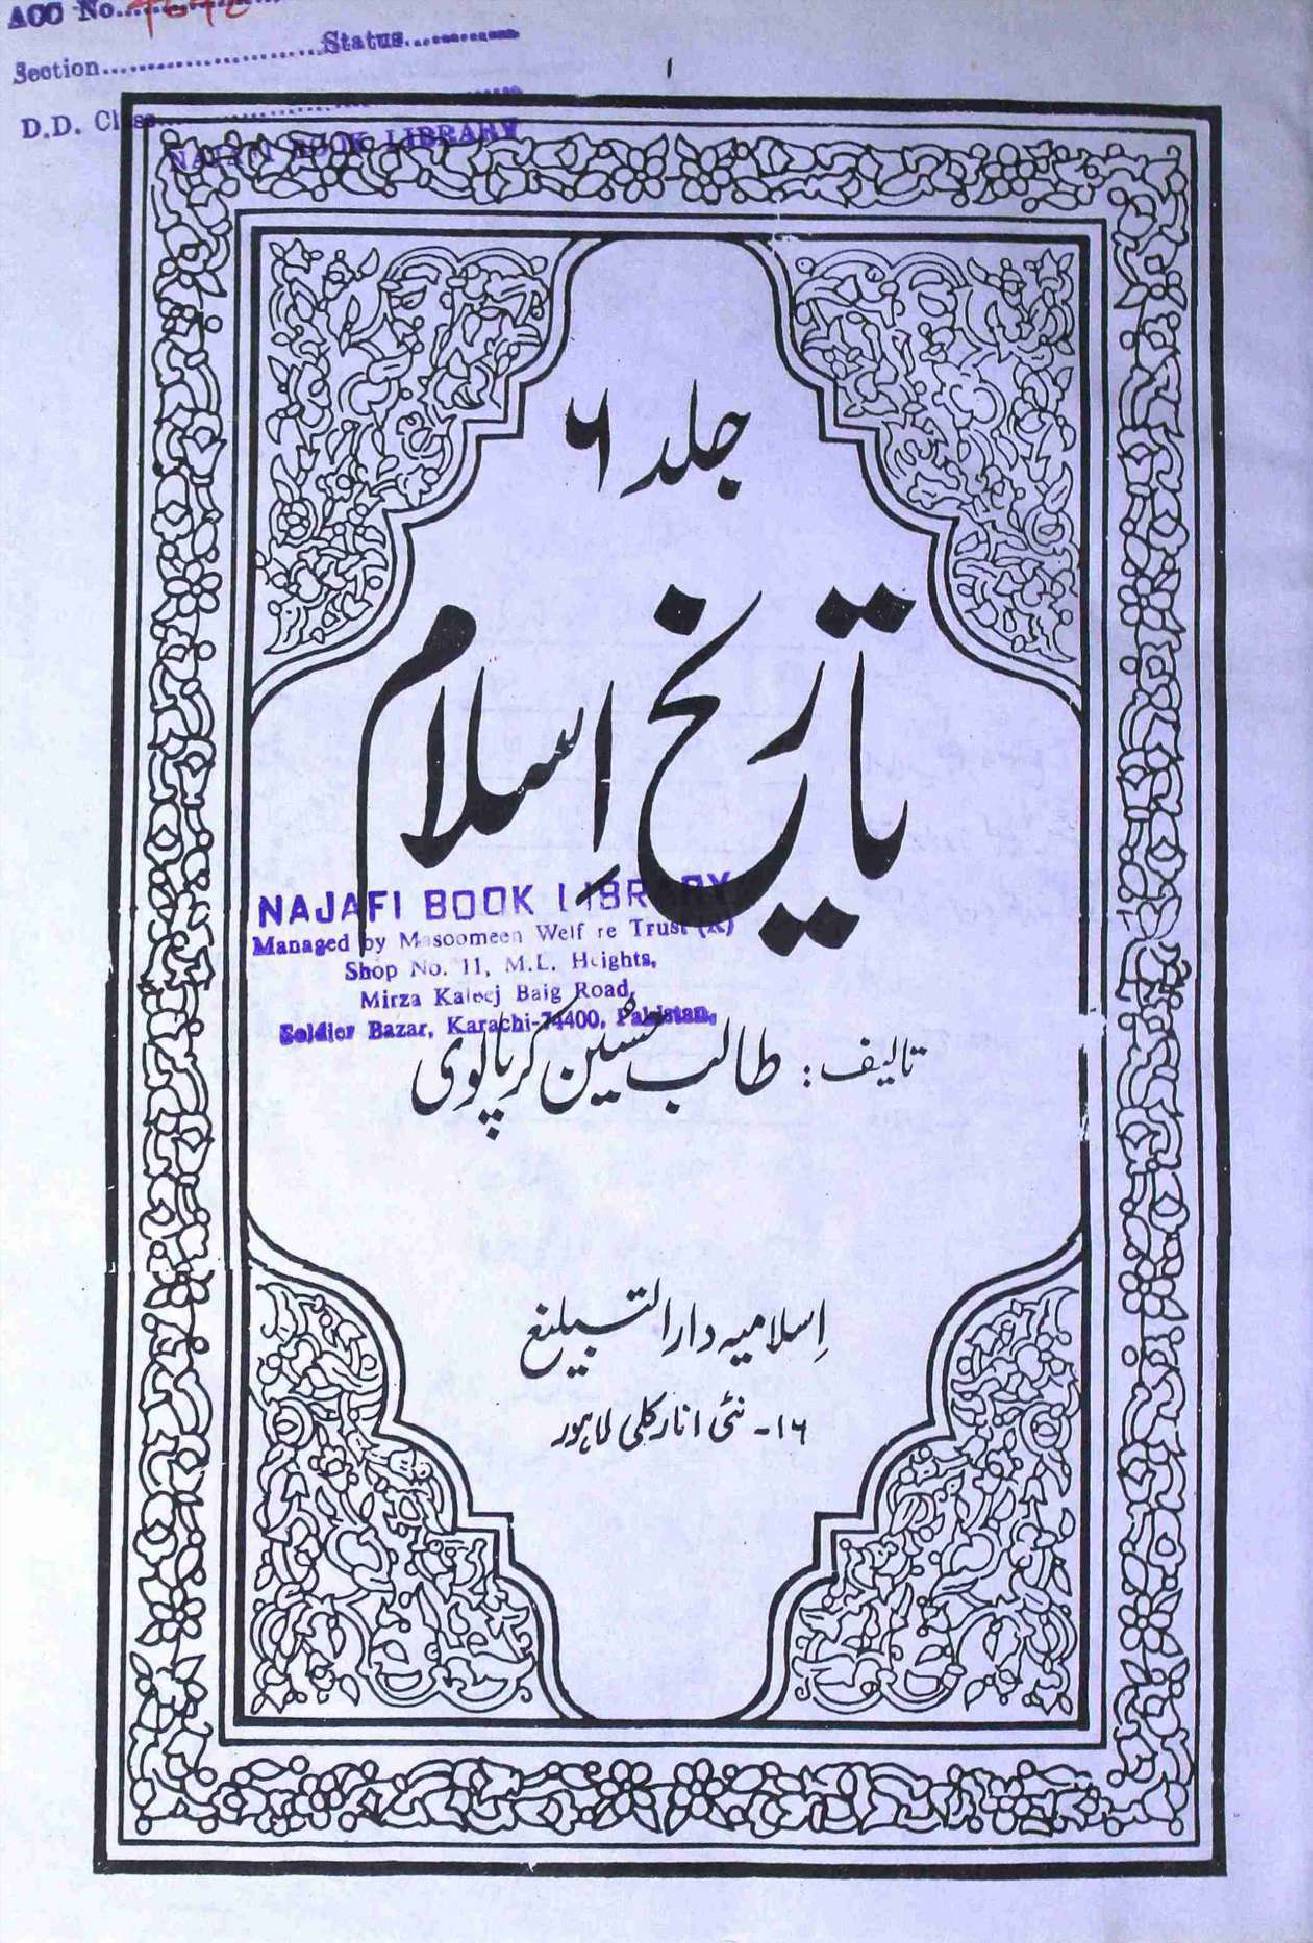 ACC No.
Section......................Status.............
D.D. Class
NAJAFI BOOK LIBRARY
۱
جلد ۶
تاریخ اِسلام
NAJAFI BOOK LIBRARY
Managed by Masoomeen Welfare Trust (R)
Shop No. 11, M.L. Heights,
Mirza Kaleej Baig Road,
Soldier Bazar, Karachi-74400, Pakistan.
تالیف: طالب حسین کرپالوی
اِسلامیہ دار التبلیغ
۱۶۔ نئی انارکلی لاہور